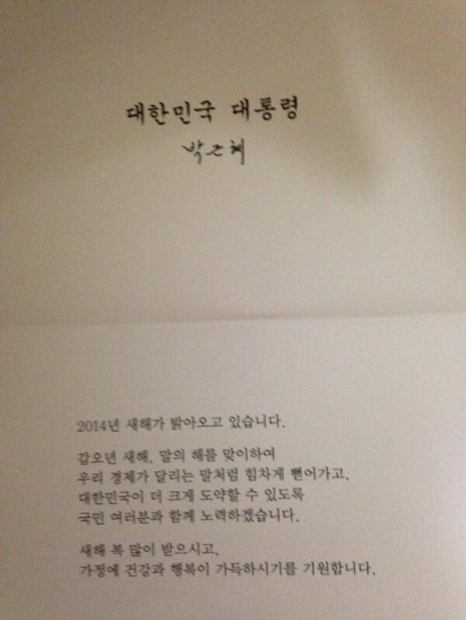 대한민국 대통령
박근혜
2014년 새해가 밝아오고 있습니다.
갑오년 새해, 말의 해를 맞이하여
우리 경제가 달리는 말처럼 힘차게 뻗어가고,
대한민국이 더 크게 도약할 수 있도록
국민 여러분과 함께 노력하겠습니다.
새해 복 많이 받으시고,
가정에 건강과 행복이 가득하시기를 기원합니다.